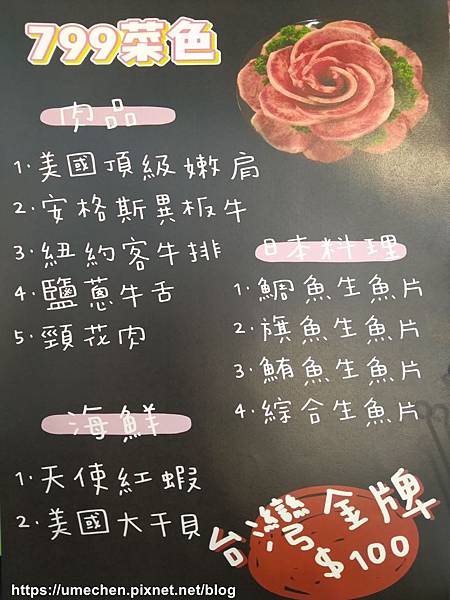 799菜色
肉品
1.美國頂級嫩肩
2.安格斯異板牛
3.紐約客牛排
4.鹽蔥牛舌
5.頸花肉
海鮮
1.天使紅蝦
2.美國大干貝
日本料理
1.鯛魚生魚片
2.旗魚生魚片
3.鮪魚生魚片
4.綜合生魚片
台灣金牌
$100
https://umechen.pixnet.net/blog